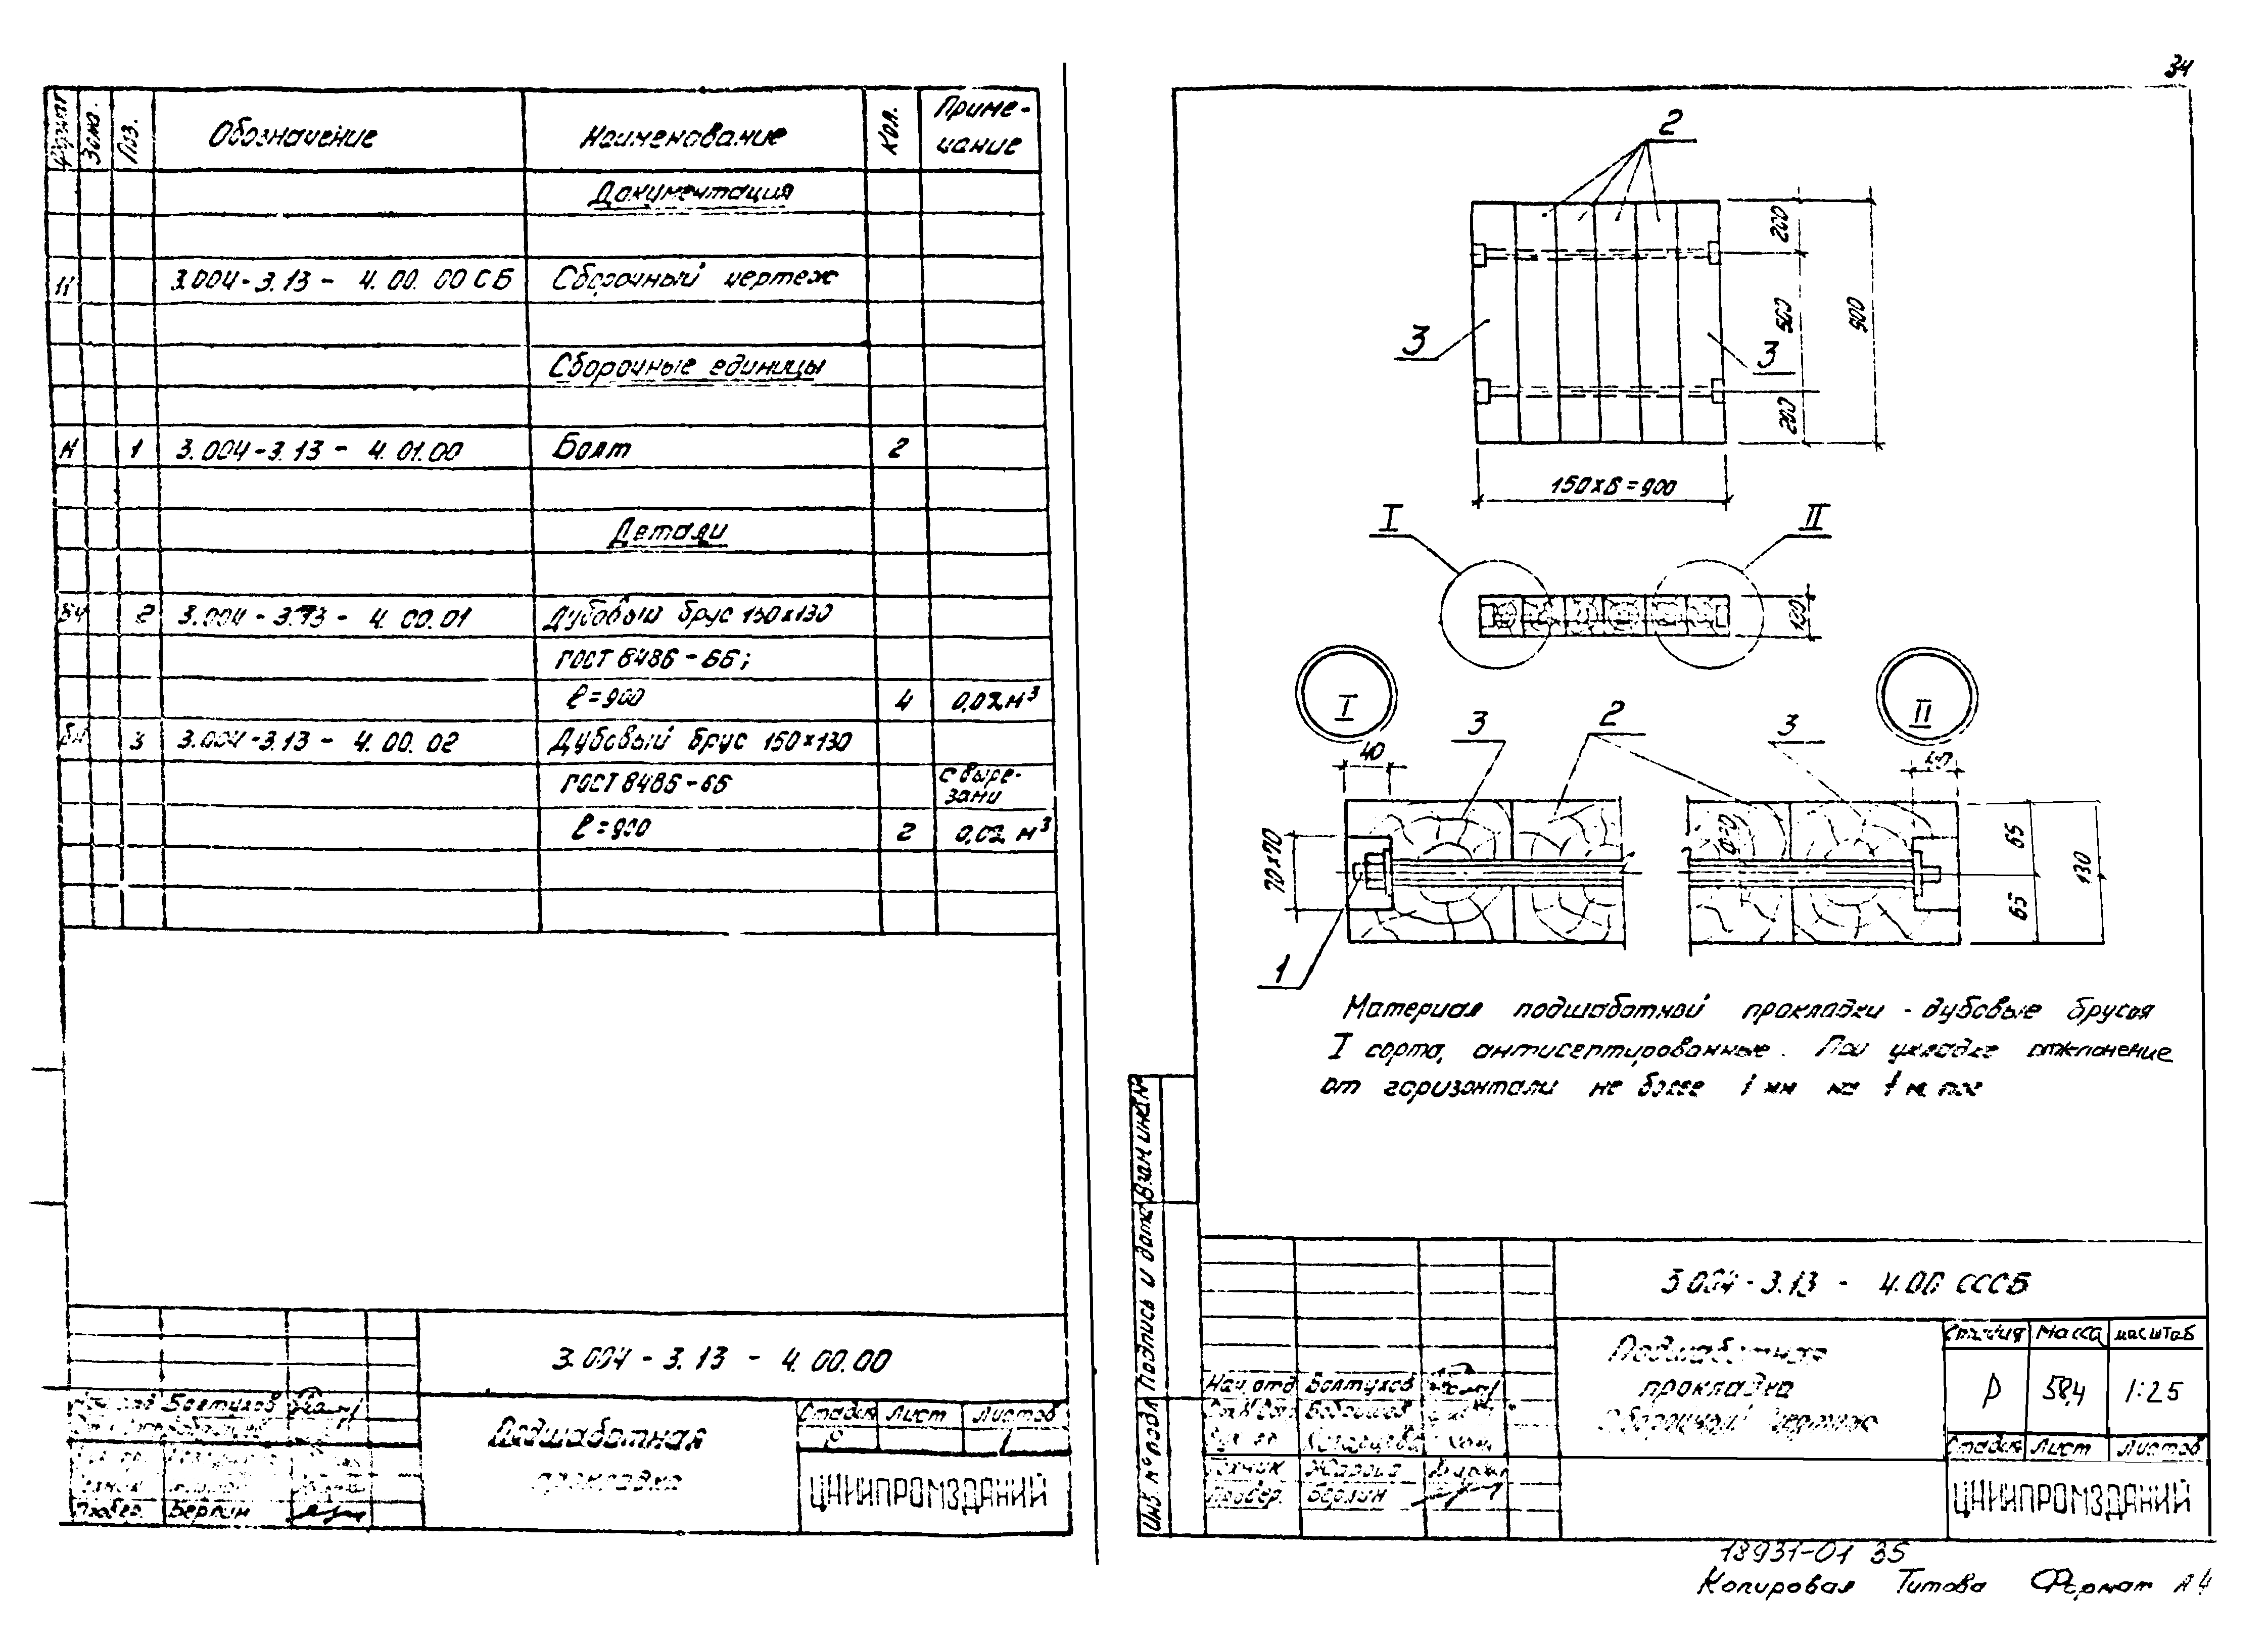 34
Формат Зона Поз. Обозначение Наименование Кол. Приме-
чание
Документация
11 3.004-3.13 - 4.00.00 СБ Сборочный чертеж
Сборочные единицы
1 3.004-3.13 - 4.01.00 Болт 2
Детали
БЧ 2 3.004-3.13 - 4.00.01 Дубовый брус 150х130
ГОСТ 8486-66;
ℓ=900 4 0,02м³
БЧ 3 3.004-3.13 - 4.00.02 Дубовый брус 150х130
ГОСТ 8486-66 с выре-
зами
ℓ=900 2 0,02 м³
3.004 - 3.13 - 4.00.00
Нач. отд Болтухов
Провер. Берлин
Подшаботная
прокладка
Стадия Лист Листов
Р 1
ЦНИИПРОМЗДАНИЙ
2
3
3
200
500
200
900
150х6=900
I
II
130
I
II
3
2
3
40
40
70х70
65
65
130
1
Материал подшаботной прокладки - дубовые брусья
I сорта, антисептированные. При укладке отклонение
от горизонтали не более 1 мм на 1 м
Инв. № подл. Подпись и дата Взам инв. №
3.004-3.13 - 4.00 СССБ
Подшаботная
прокладка
Сборочный чертеж
Стадия Масса масштаб
Р 58,4 1:25
Стадия Лист Листов
ЦНИИПРОМЗДАНИЙ
Нач. отд Болтухов
Техник Жарова
Провер. Берлин
18931-01 35
Копировал Титова Формат А4